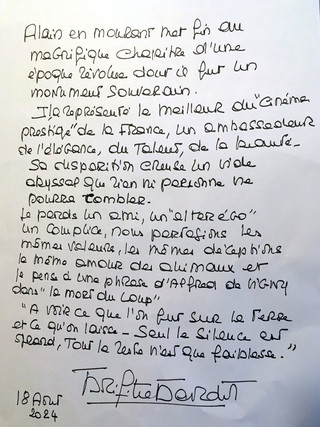 Alain en mourant met fin au
magnifique chapitre d'une
époque révolue dont il fut un
monument souverain.
Il a représenté le meilleur du "cinéma
prestige" de la France, un ambassadeur
de l'élégance, du talent, de la beauté -
Sa disparition creuse un vide
abyssal que rien ni personne ne
pourra combler.
Je perds un ami, un "alter ego"
un complice, nous partagions les
mêmes valeurs, les mêmes déceptions
le même amour des animaux et
je pense à une phrase d'Alfred de Vigny
dans "la mort du loup"
"A voir ce que l'on fut sur la terre
et ce qu'on laisse - Seul le silence est
grand, tout le reste n'est que faiblesse."
Brigitte Bardot
18 Août
2024